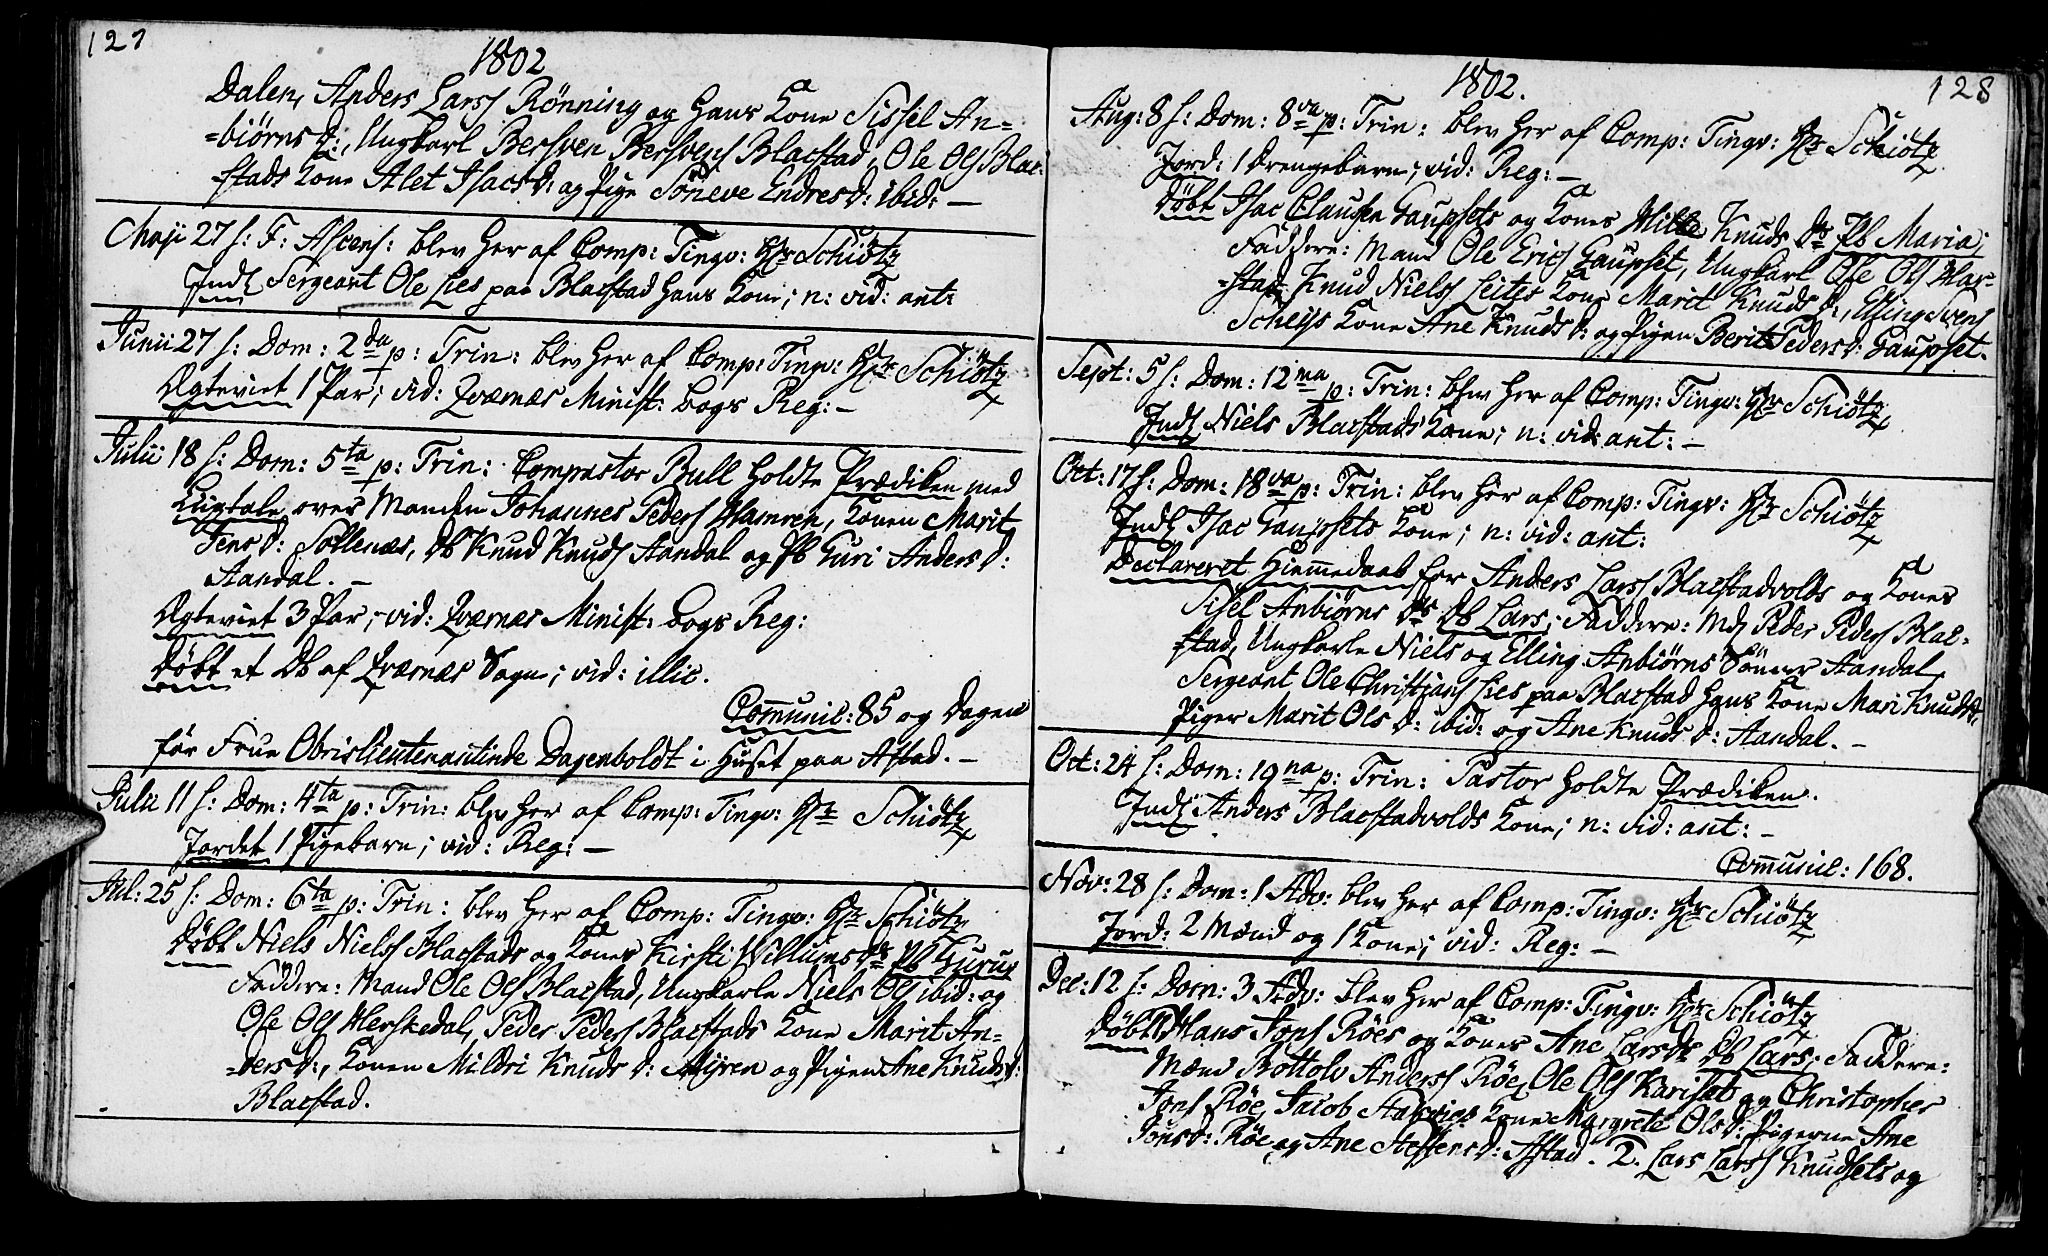 127
1802
Dalen, Anders Larss Rönning og hans Kone Sissel An=
=biörns d:, Ungkarl Bersven Bersvens Blacstad, Ole Ols Blac=
stads Kone Alet Isacs d: og Pige Söneve Endres d: ibid: —
Maji 27 s: F: Ascens: blev her af Comp: Tingv: Hr Schiötz
Indl Sergeant Ole Lies paa Blacstad hans Kone; n: vid: ant:
Junii 27 s: Dom: 2da p: Trin: blev her af Comp: Tingv: Hr Schiötz
Ægteviet 1 Par; vid: Qværnæs Minist: bogs Reg: —
Julii 18 s: Dom: 5ta p: Trin: Compastor Bull holdte Prædiken med
Liigtale over Manden Johannes Peders Hamren, Konen Marit
Jens d: Sollenæs, Db Knud Knuds Aandal og Pb Guri Anders d:
Aandal. —
Ægteviet 3 Par; vid: Qværnæs Minist: bogs Reg:
Döbt et Db af Qværnæs Sogn; vid: illic.
Communic: 85 og Dagen
för Frue Obristlieutenantinde Dagenboldt i Huset paa Astad. —
Julii 11 s: Dom: 4ta p: Trin: blev her af Comp: Tingv: Hr Schiötz
Jordet 1 Pigebarn; vid: Reg: —
Jul: 25 s: Dom: 6ta p: Trin: blev her af Comp: Tingv: Hr Schiötz
Döbt Niels Niels Blacstads og Kones Kirsti Willums dr Pb Gurue
Faddere: Mand Ole Ols Blacstad, Ungkarle Niels Ols ibid: og
Ole Ols Herskedal, Peder Peders Blacstads Kone Marit An=
=ders d:, Konen Mildri Knuds d: Myren og Pigen Ane Knuds d:
Blacstad.
1802.
128
Aug: 8 s: Dom: 8va p: Trin: blev her af Comp: Tingv: Hr Schiötz
Jord: 1 Drengebarn; vid: Reg: —
Döbt Isac Clausen Gaupsets og Kones Mille Knuds dr Pb Maria;
Faddere: Mand Ole Erics Gaupset, Ungkarl Ole Ols Har=
=stad, Knud Niels Leites Kone Marit Knuds d:, Elling Svens
Scheiss Kone Ane Knuds d: og Pigen Berit Peders d: Gaupset.
Sept: 5 s: Dom: 12ma p: Trin: blev her af Comp: Tingv: Hr Schiötz
Indl Niels Blacstads Kone; n: vid: ant: —
Oct: 17 s: Dom: 18va p: Trin: blev her af Comp: Tingv: Hr Schiötz
Indl Isac Gaupsets Kone; n: vid: ant:
Declareret Hiemmedaab for Anders Larss Blacstadvolds og Kones
Sisel Anbiörns dr Db Lars; Faddere: Md Peder Peders Blac=
stad, Ungkarle Niels og Elling Anbiörns Sönner Aandal,
Sergeant Ole Christians Lies paa Blacstad hans Kone Mari Knuds d,
Piger Marit Ols d: ibid: og Ane Knuds d: Aandal. —
Oct: 24 s: Dom: 19na p: Trin: Pastor holdte Prædiken.
Indl Anders Blacstadvolds Kone; n: vid: ant: —
Communic: 168.
Nov: 28 s: Dom: 1 Adv: blev her af Comp: Tingv: Hr Schiötz
Jord: 2 Mænd og 1 Kone; vid: Reg: —
Dec: 12 s: Dom: 3 Adv: blev her af Comp: Tingv: Hr Schiötz
Döbt Hans Jons Röes og Kones Ane Lars dr Db Lars; Faddere:
Mænd Bottolv Anderss Röe, Ole Ols Kariset og Christopher
Jons Röe, Jacob Kone Margrete Ols d:, Pigerne Ane
Jons d: Röe og Ane Steffens d: Astad. 2. Lars Larss Knudsets og